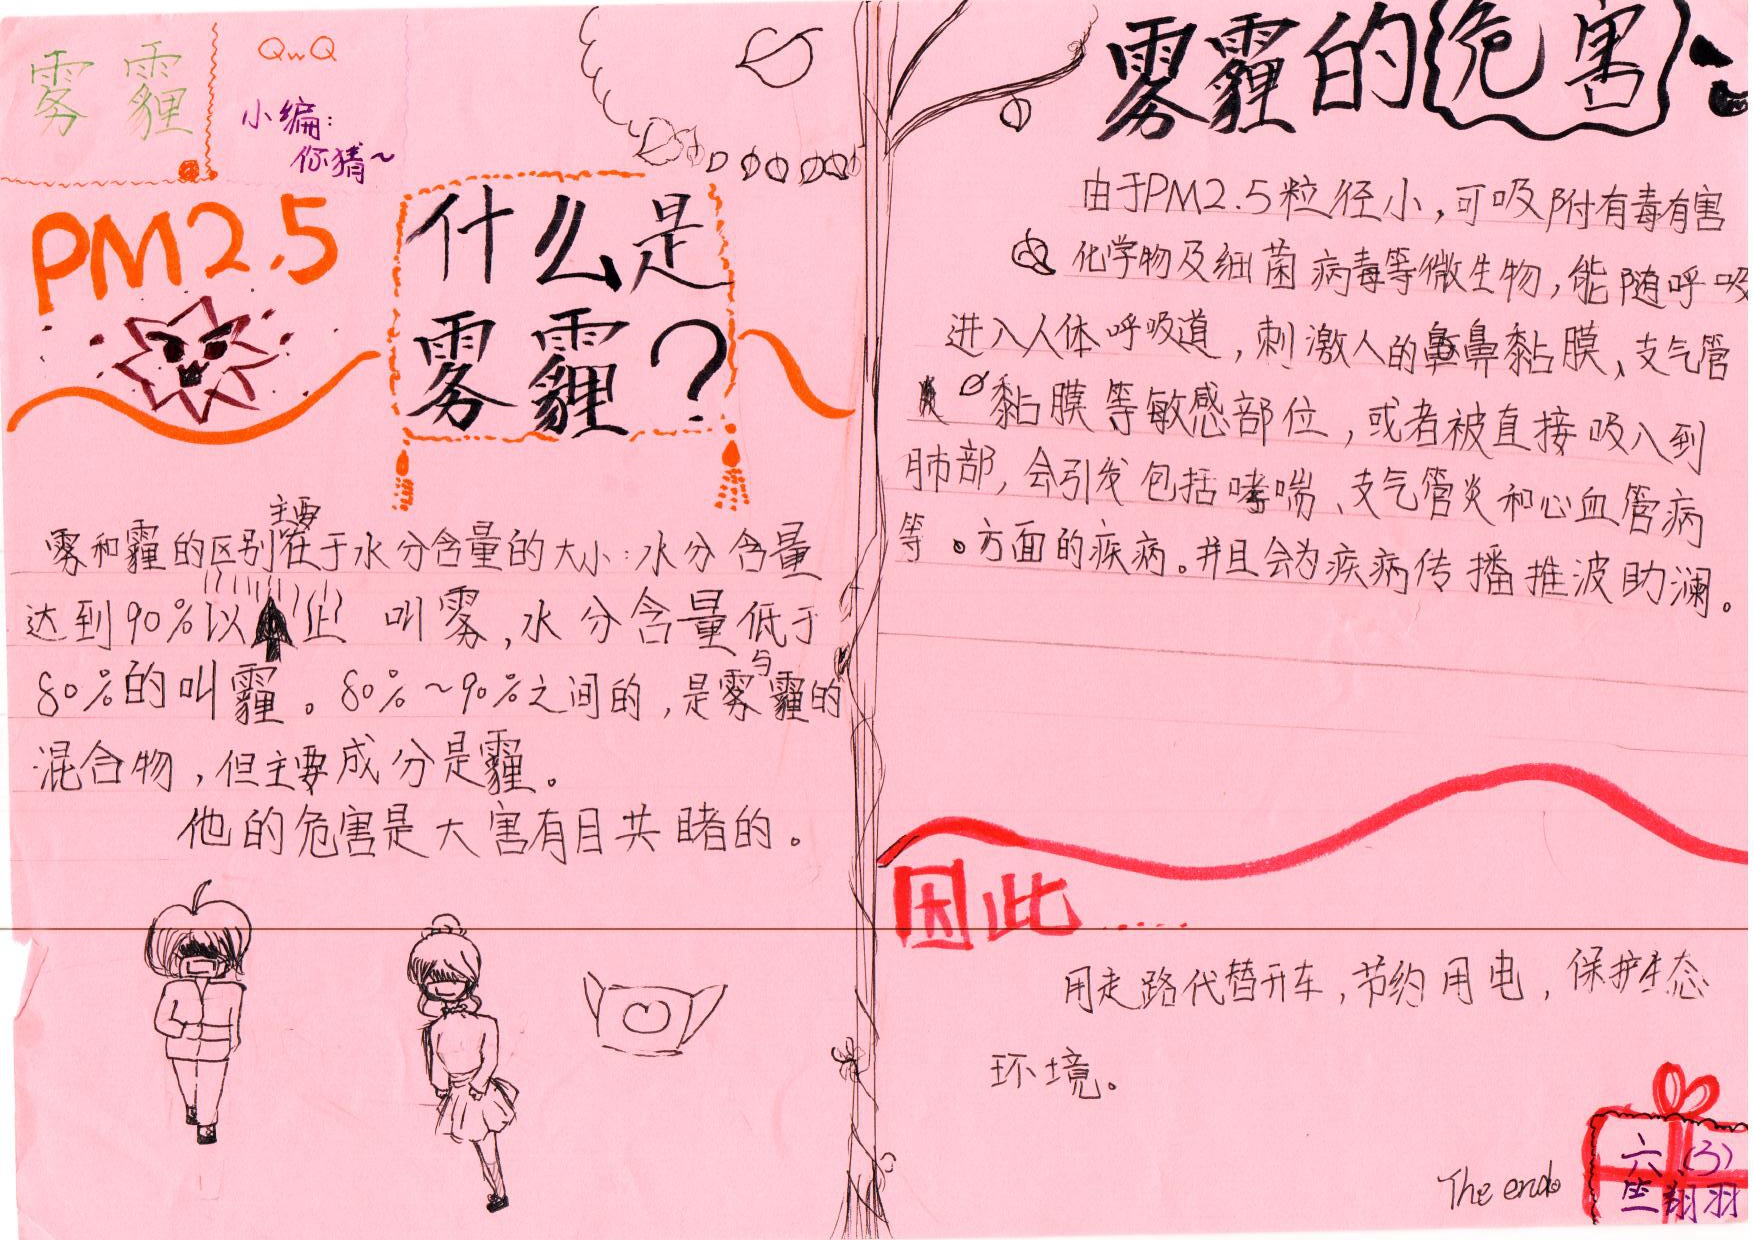 雾霾
QwQ
小编:
你猜~
PM2.5
什么是
雾霾?
雾和霾的区别主要在于水分含量的大小:水分含量
达到90%以上 叫雾,水分含量低于
80%的叫霾。80%~90%之间的,是雾与霾的
混合物,但主要成分是霾。
他的危害是大害有目共睹的。
雾霾的危害
由于PM2.5粒径小,可吸附有毒有害
化学物及细菌病毒等微生物,能随呼吸
进入人体呼吸道,刺激人的鼻黏膜、支气管
黏膜等敏感部位,或者被直接吸入到
肺部,会引发包括哮喘、支气管炎和心血管病
等。方面的疾病。并且会为疾病传播推波助澜。
因此......
用走路代替开车,节约用电,保护生态
环境。
The end
六(3)
翔羽